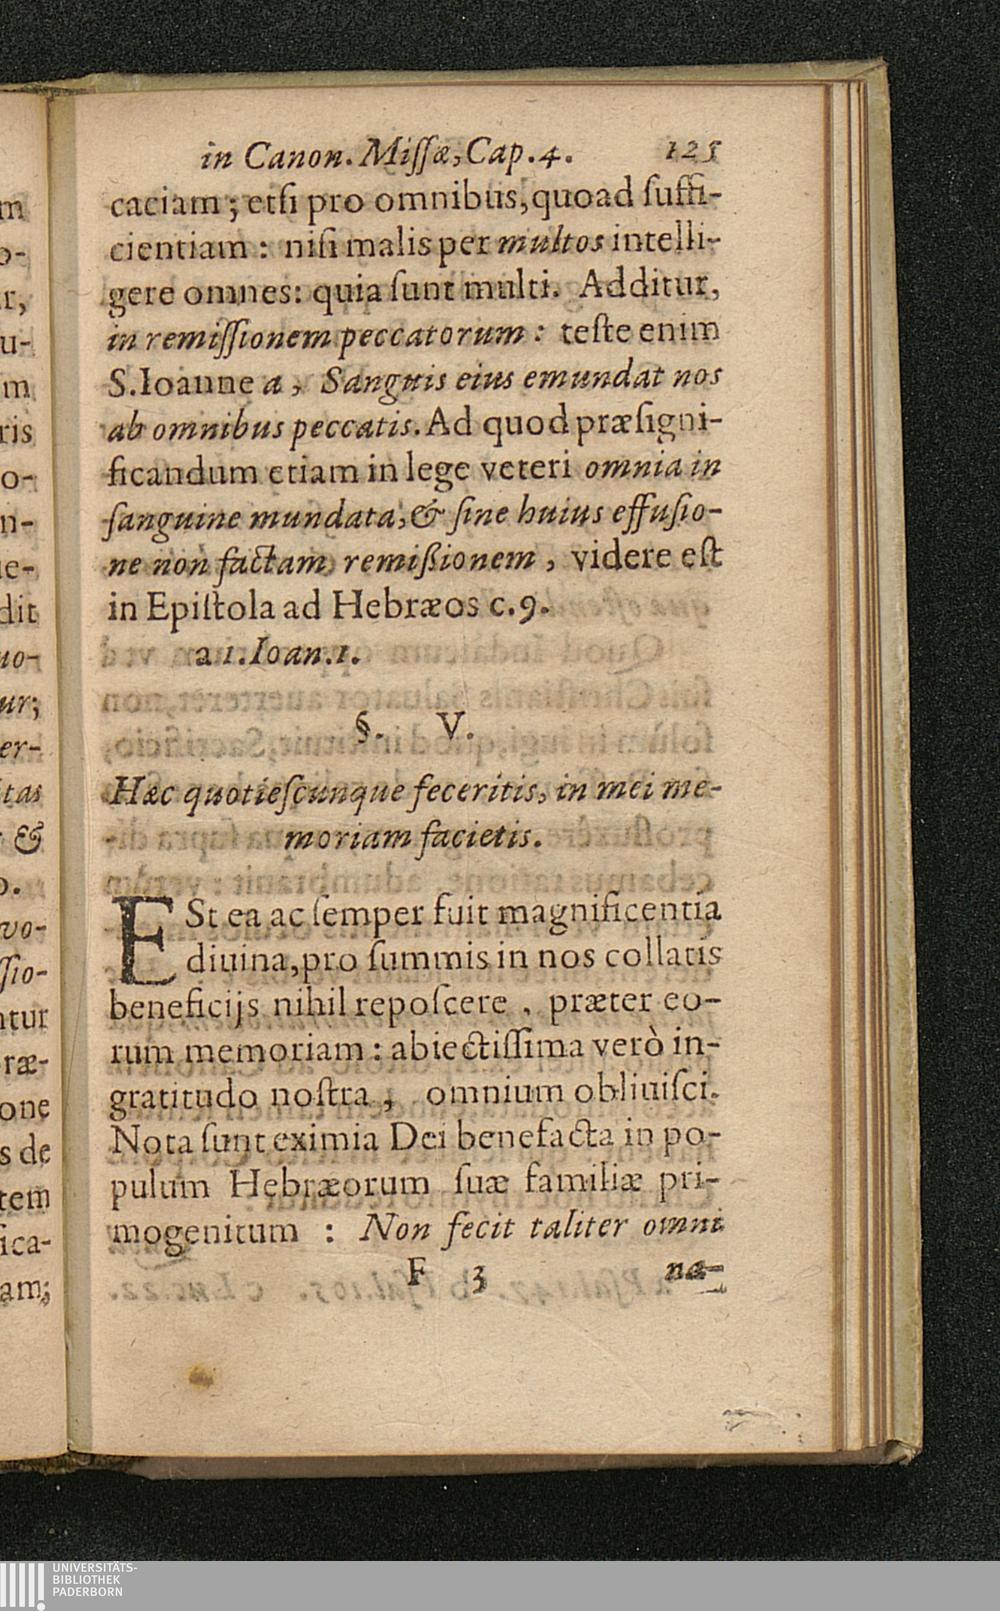 in Canon. Miſſæ, Cap. 4. 125
caciam; etſi pro omnibus, quoad ſuffi-
cientiam: niſi malis per multos intelli-
gere omnes: quia ſunt multi. Additur,
in remiſſionem peccatorum: teſte enim
S. Ioanne a, Sanguis eius emundat nos
ab omnibus peccatis. Ad quod præſigni-
ficandum etiam in lege veteri omnia in
ſanguine mundata, & ſine huius effuſio-
ne non factam remißionem, videre eſt
in Epiſtola ad Hebræos c. 9.
a 1. Ioan. 1.
§. V.
Hæc quotieſcunque feceritis, in mei me-
moriam facietis.
ESt ea ac ſemper fuit magnificentia
diuina, pro ſummis in nos collatis
beneficijs nihil repoſcere, præter eo-
rum memoriam: abiectiſſima verò in-
gratitudo noſtra, omnium obliuiſci.
Nota ſunt eximia Dei benefacta in po-
pulum Hebræorum ſuæ familiæ pri-
mogenitum: Non fecit taliter omni
F 3 na-
m
o-
r,
u-
m
ris
o-
n-
e-
dit
uo-
ur;
er-
tas
&
o.
vo-
ſſio-
ntur
ræ-
one
s de
tem
ica-
am;
UNIVERSITÄTS-
BIBLIOTHEK
PADERBORN